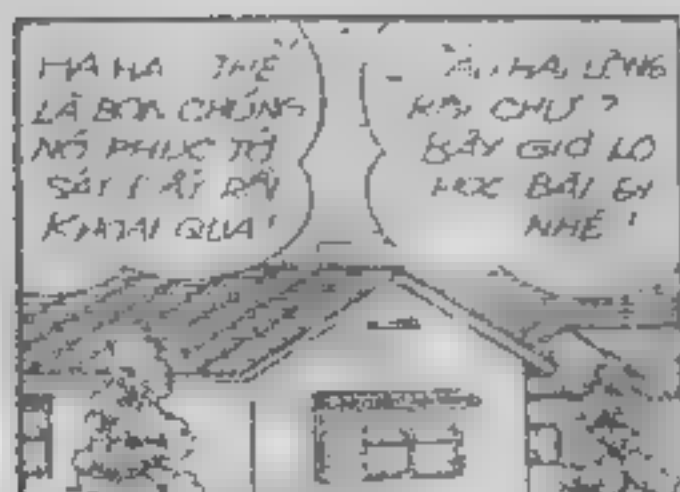 HA HA THẾ
LÀ BỌN CHÚNG
NÓ PHỤC TỚ
SÁT ĐẤT RỒI
KHOÁI QUÁ!
HA, ƯNG
RỒI CHỨ?
BÂY GIỜ LO
HỌC BÀI ĐI
NHÉ!